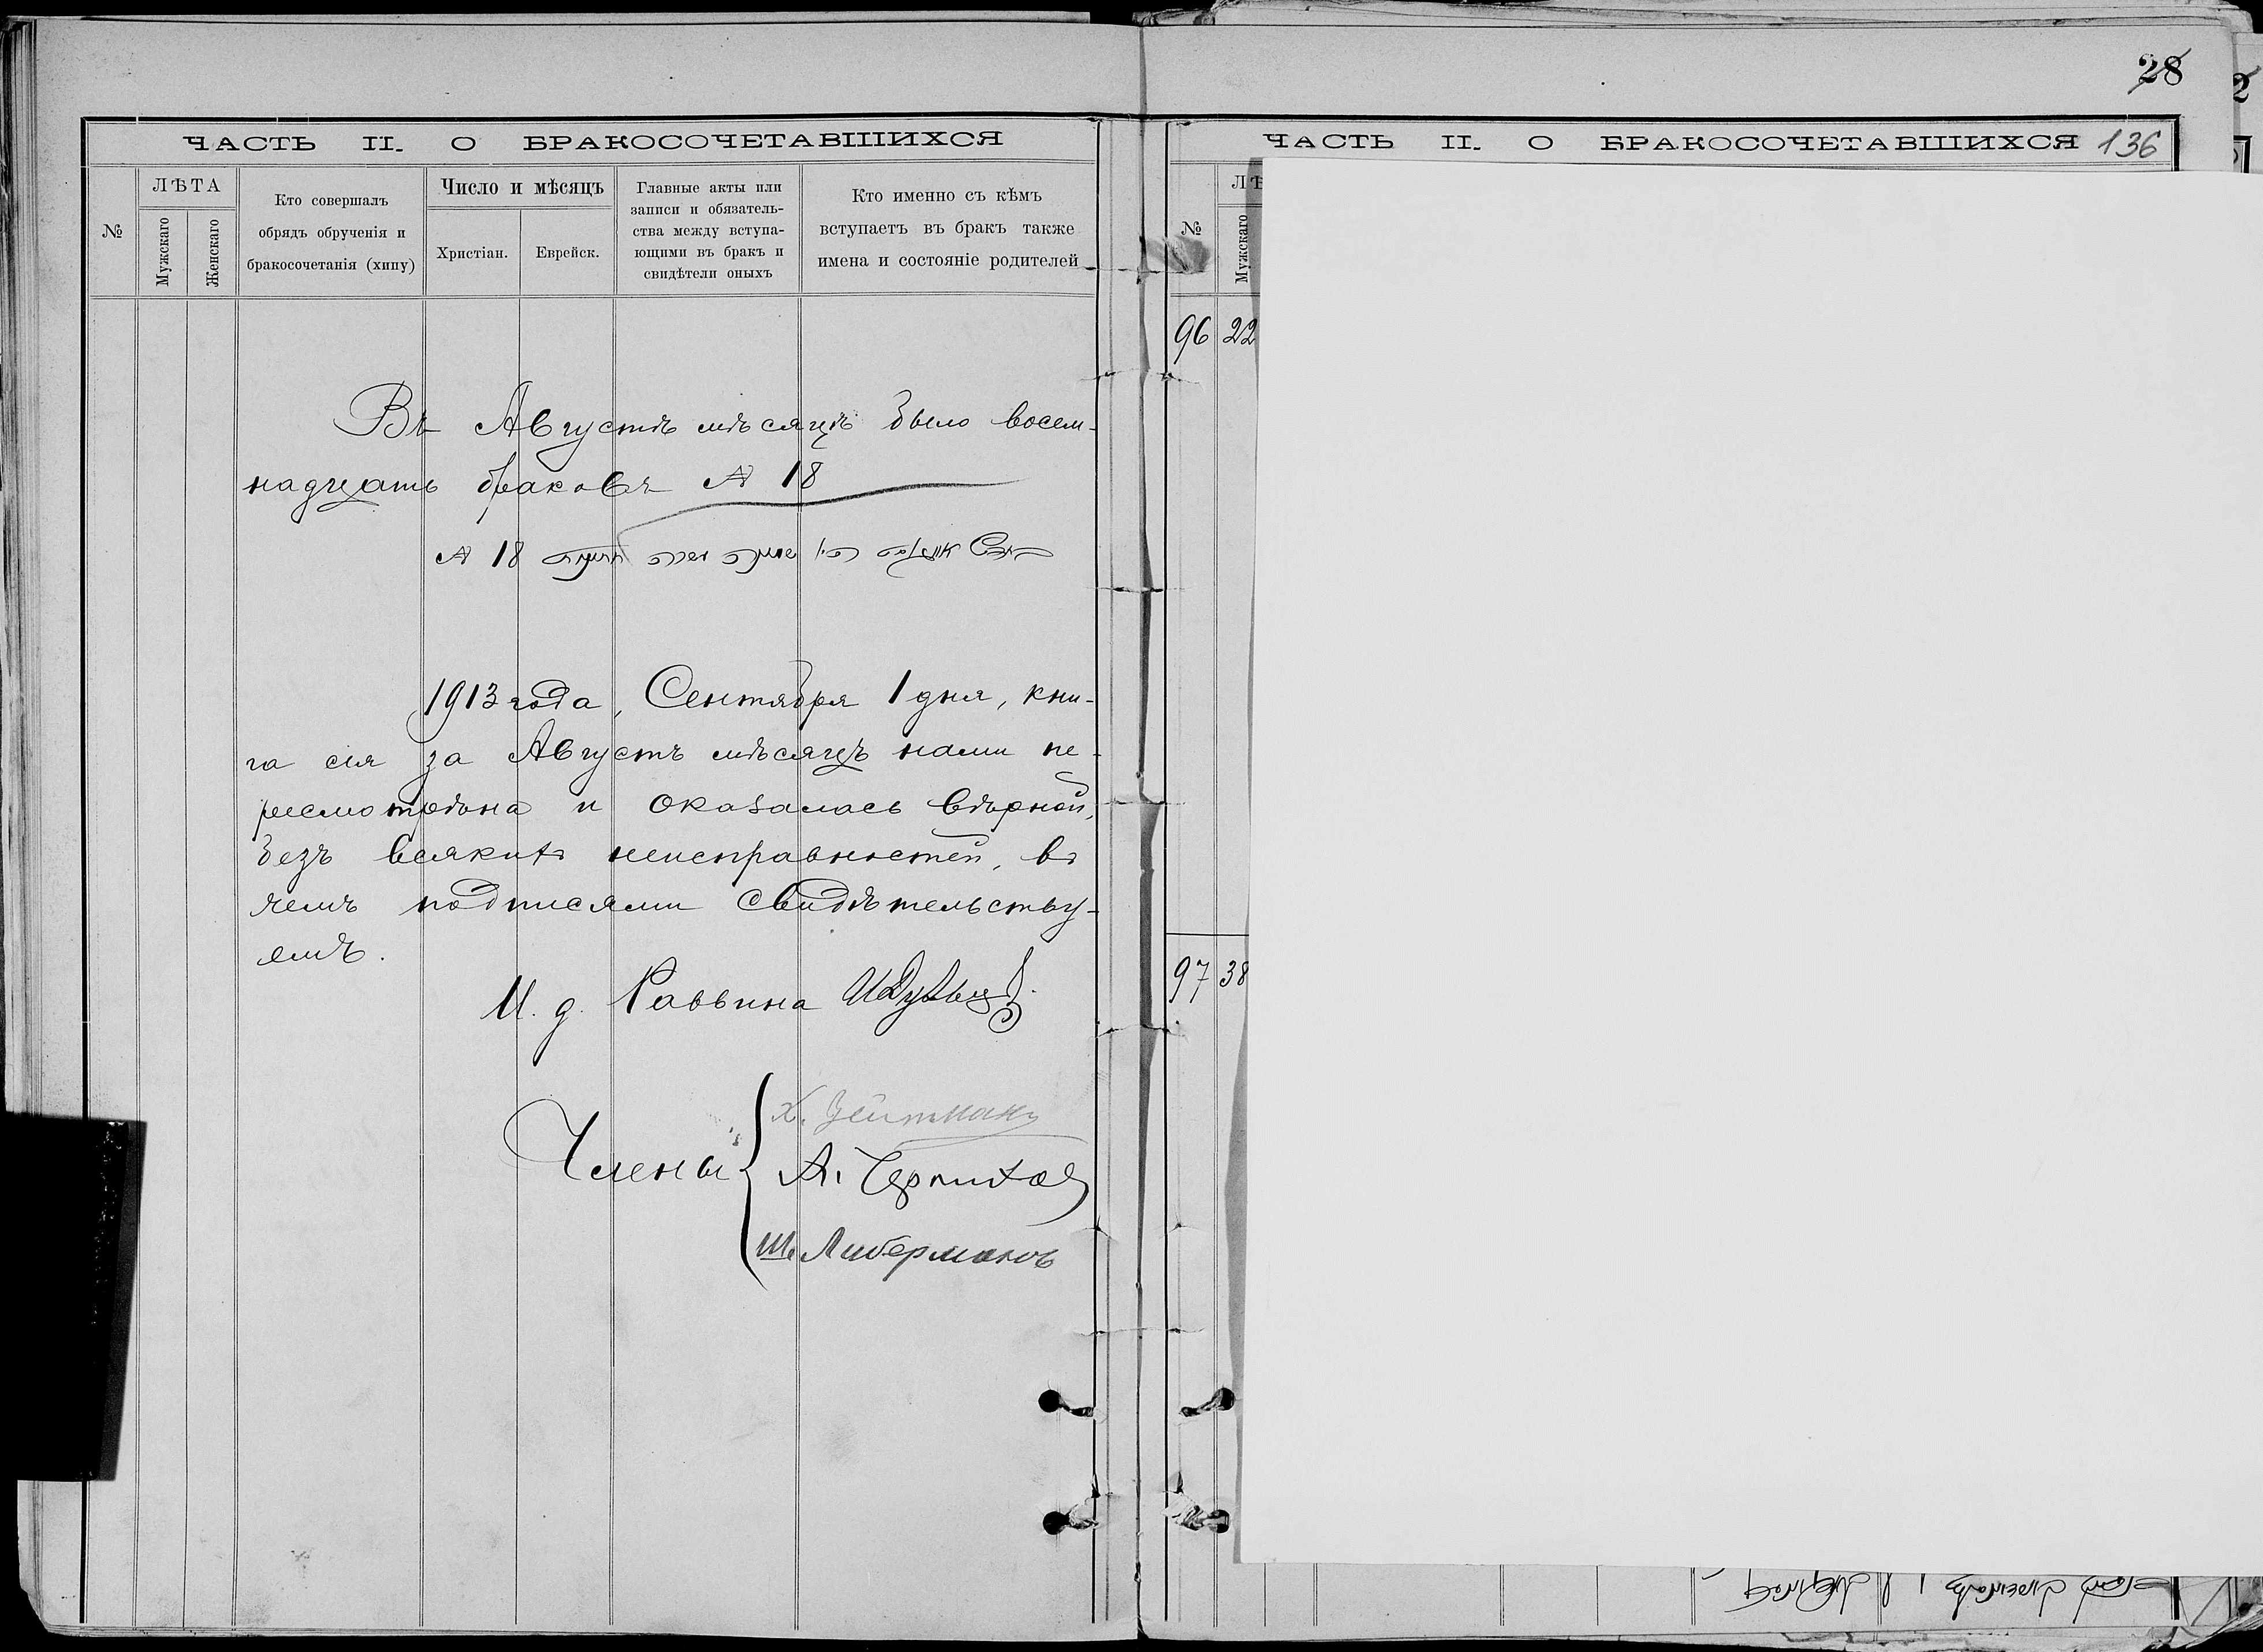 28
ЧАСТЬ II. О БРАКОСОЧЕТАВШИХСЯ
№
ЛѢТА
Мужскаго
Женскаго
Кто совершалъ
обрядъ обрученія и
бракосочетанія (хипу)
Число и мѣсяцъ
Христіан.
Еврейск.
Главные акты или
записи и обязатель-
ства между вступа-
ющими въ бракъ и
свидѣтели оныхъ
Кто именно съ кѣмъ
вступаетъ въ бракъ также
имена и состояніе родителей
Въ Августѣ мѣсяцѣ было восем-
надцать браковъ № 18
№ 18
1913 года, Сентября 1 дня, кни-
га сія за Августъ мѣсяцъ нами пе-
ресмотрѣна и оказалась вѣрной,
безъ всякихъ неисправностей, въ
чемъ подписями свидѣтельству-
емъ.
И. д. Раввина
Члены
Х. Зейтманъ
А.
Ш. Либерманъ
ЧАСТЬ II. О БРАКОСОЧЕТАВШИХСЯ 136
№
ЛѢ
Мужскаго
96 22
97 38